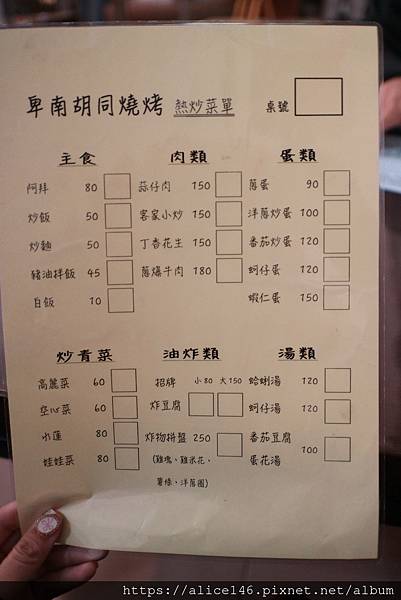 卑南胡同燒烤 熱炒菜單 桌號
主食
阿拜 80
炒飯 50
炒麵 50
豬油拌飯 45
白飯 10
肉類
蒜仔肉 150
客家小炒 150
丁香花生 150
蔥爆牛肉 180
蛋類
蔥蛋 90
洋蔥炒蛋 100
番茄炒蛋 120
蚵仔蛋 120
蝦仁蛋 150
炒青菜
高麗菜 60
空心菜 60
水蓮 80
娃娃菜 80
油炸類
招牌 小80 大150
炸豆腐
炸物拼盤 250
(雞塊、雞米花、
薯條、洋蔥圈)
湯類
蛤蜊湯 120
蚵仔湯 120
番茄豆腐
蛋花湯 100
https://alice146.pixnet.net/album